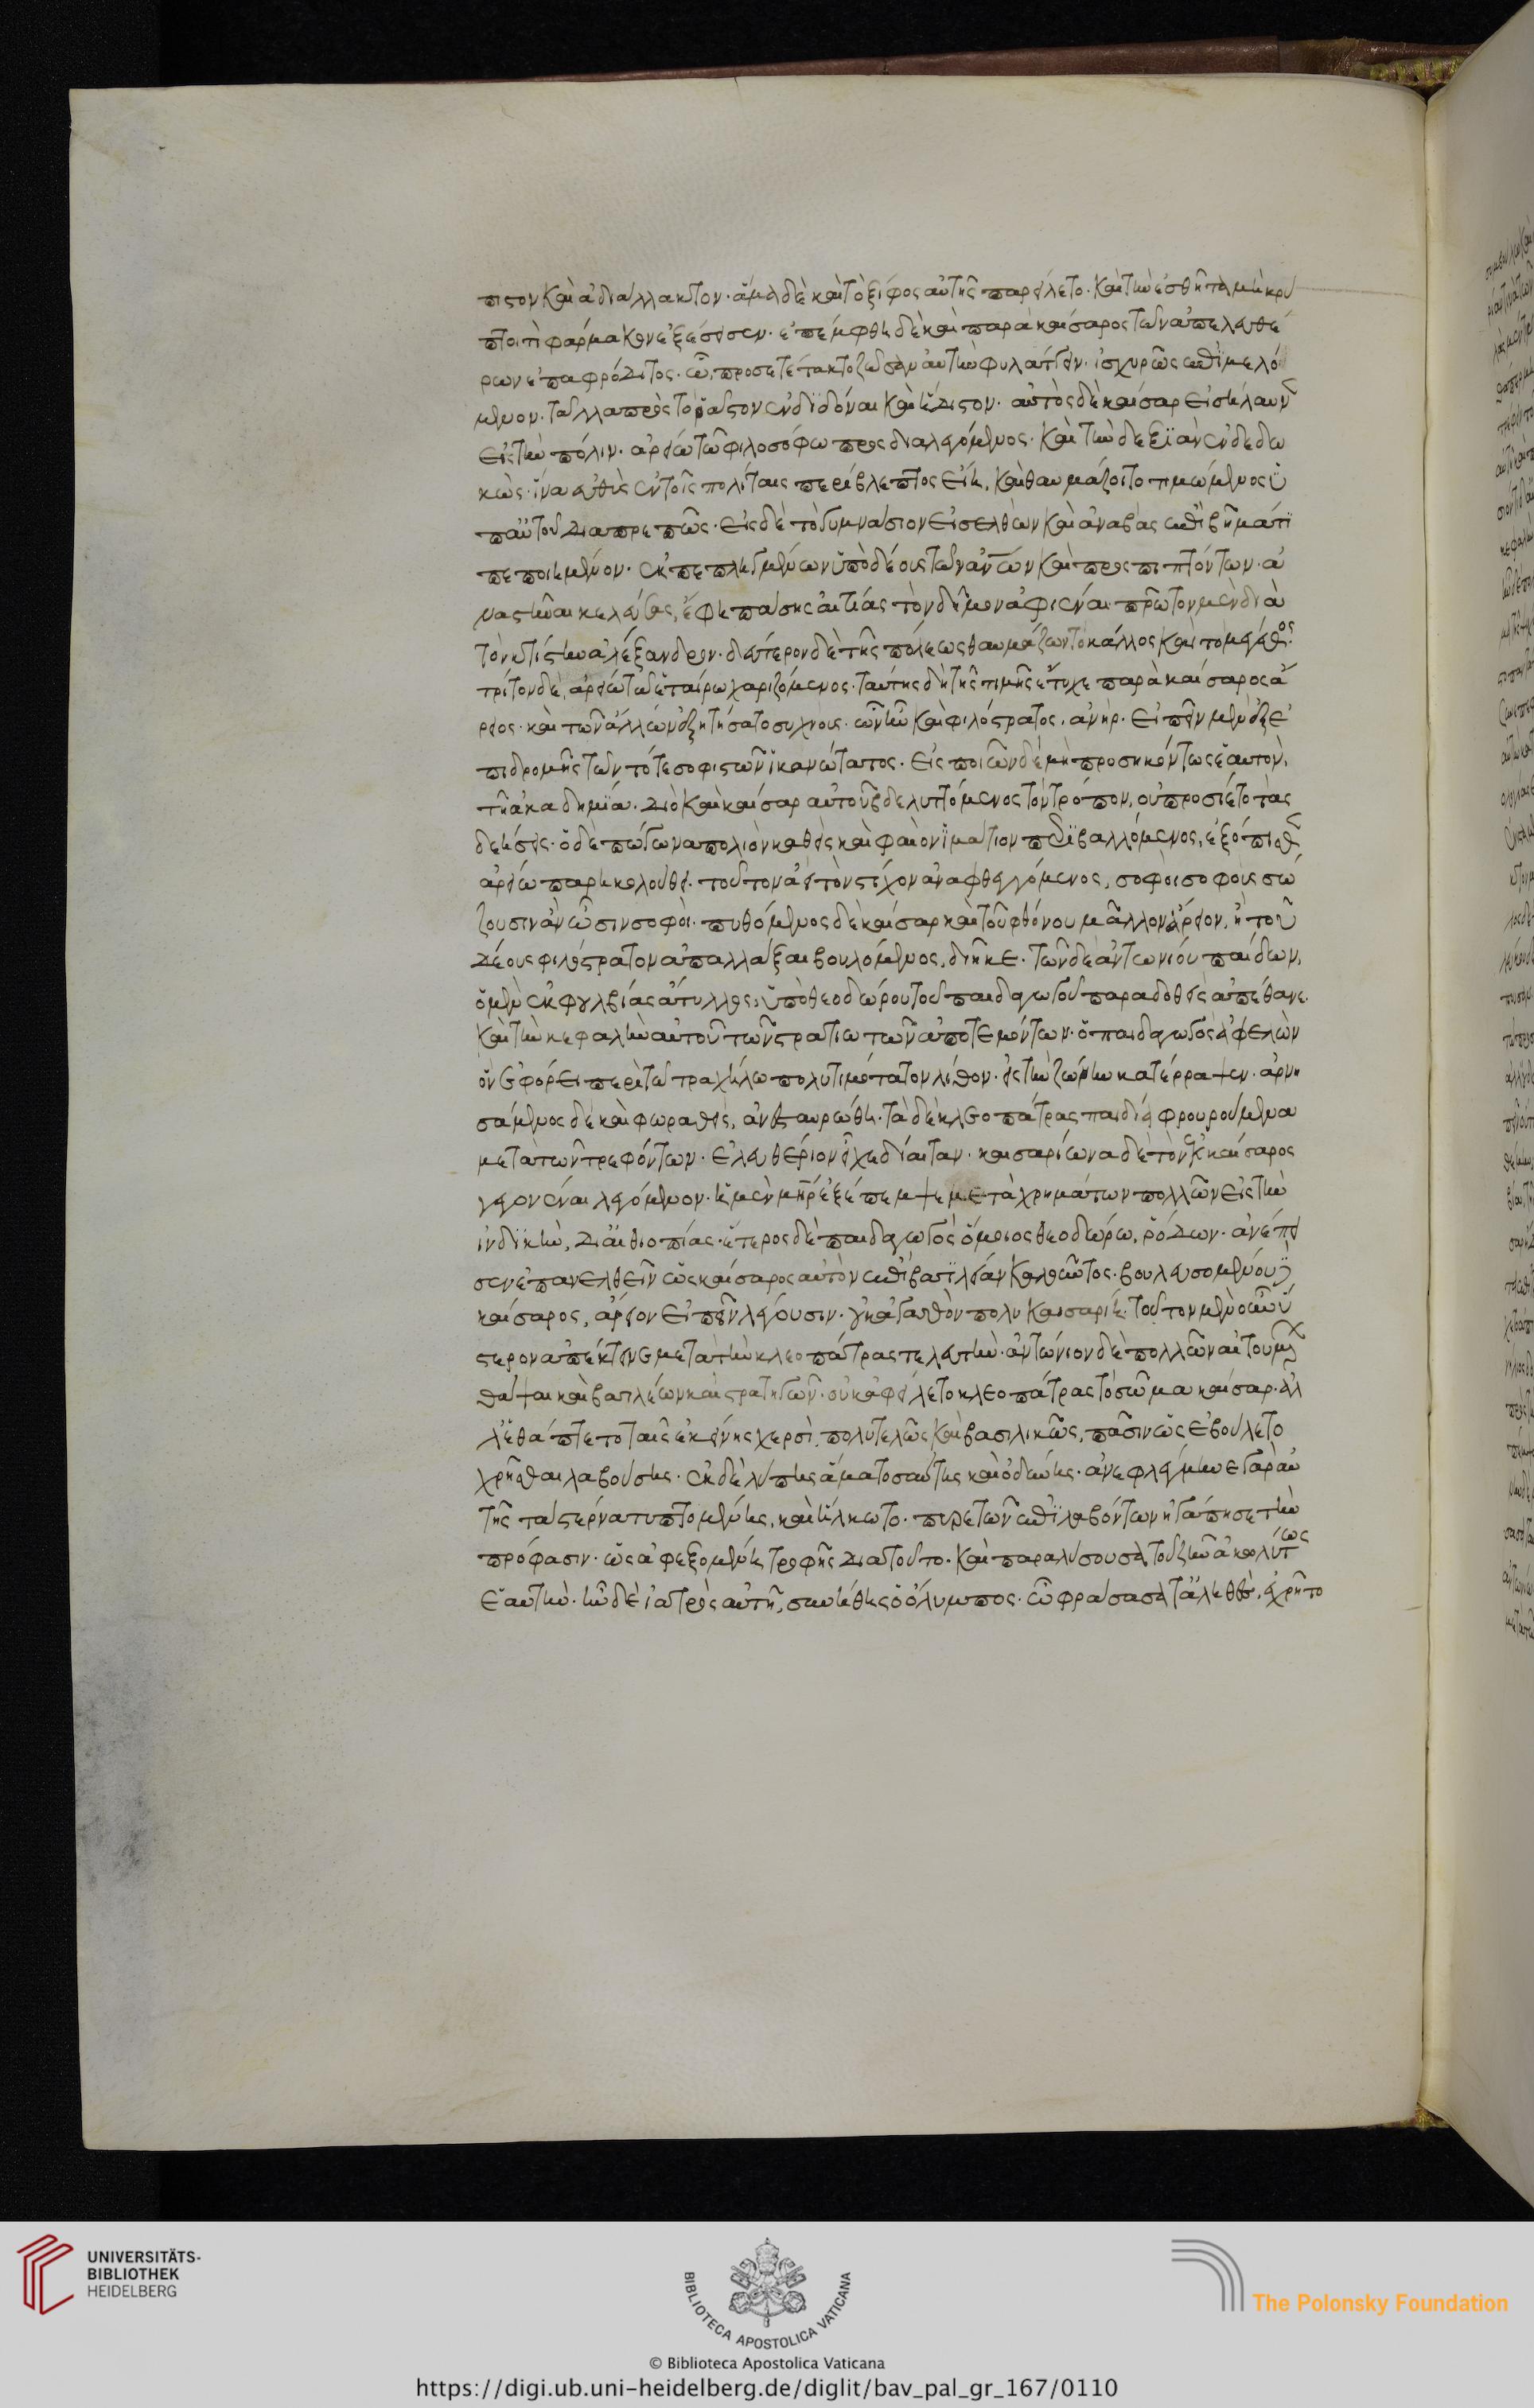 πιστον καὶ ἀδιάλλακτον· ἅμα δὲ καὶ τὸ ξίφος αὐτῆς παρείλετο· καὶ τὴν ἐσθῆτα μὴ κρύ
πτοι τὶ φάρμακον ἐξέσεισεν· ἐπέμφθη δὲ καὶ παρὰ καίσαρος τῶν ἀπελευθέ
ρων ἐπαφρόδιτος· ὧ, προσετέτακτο ζῶσαν αὐτὴν φυλάττειν· ἰσχυρῶς ἐπιμελό
μενον· τἄλλα πρὸς τὸ ῥᾶστον ἐνδιδόναι καὶ ἥδιστον· αὐτὸς δὲ καῖσαρ εἰσήλαυνεν
εἰς τὴν πόλιν· ἀρείω τῶ φιλοσόφω προσδιαλεγόμενος· καὶ τὴν δεξϊὰν ἐνδεδω
κὼς· ἵνα εὐθὺς ἐν τοῖς πολίταις περίβλεπτος εἴη, καὶ θαυμάζοιτο τιμώμενος ὑ
π' αὐτοῦ διαπρεπῶς· εἰς δὲ τὸ γυμνάσιον εἰσελθὼν καὶ ἀναβὰς ἐπὶ βῆμά τι
πεποιημένον· ἐκπεπληγμένων ὑπὸ δέους τῶν ἀνθρώπων καὶ προσπιπτόντων· ἀ
ναστῆναι κελεύσας, ἔφη πάσης αἰτίας τὸν δῆμον ἀφιέναι· πρῶτον μὲν διὰ
τὸν κτίστην ἀλέξανδρον· δεύτερον δὲ τῆς πόλεως θαυμάζων τὸ κάλλος καὶ τὸ μέγεθος·
τρίτον δὲ, ἀρείω τῶ ἑταίρω χαριζόμενος· ταύτης δὴ τῆς τιμῆς ἔτυχε παρὰ καίσαρος ἄ
ρειος· καὶ τῶν ἄλλων ἐξητήσατο συχνοὺς· ὧν ἦν καὶ φιλόστρατος, ἀνὴρ· εἰπεῖν μὲν ἐξ ἐ
πιδρομῆς τῶν τότε σοφιστῶν ἱκανώτατος· εἰσποιῶν δὲ μὴ προσηκόντως ἑαυτὸν,
τῆ ἀκαδημία· διὸ καὶ καῖσαρ αὐτοῦ βδελυττόμενος τὸν τρόπον, οὐ προσίετο τὰς
δεήσεις· ὁ δὲ πώγωνα πολιὸν καθεὶς καὶ φαιὸν ἱμάτιον περιβαλλόμενος, ἐξόπισθεν
ἀρείω παρηκολούθει· τοῦτον ἀεὶ τὸν στίχον ἀναφθεγγόμενος, σοφοὶ σοφοὺς σώ
ζουσιν ἂν ὦσιν σοφοὶ· πυθόμενος δὲ καῖσαρ καὶ τοῦ φθόνου μᾶλλον ἄρειον, ἢ τοῦ
δέους φιλόστρατον ἀπαλλάξαι βουλόμενος, διῆκε· τῶν δὲ ἀντωνίου παίδων,
ὁ μὲν ἐκ φυλβίας ἄτυλλος, ὑπὸ θεοδώρου τοῦ παιδαγωγοῦ παραδοθεὶς ἀπέθανε·
καὶ τὴν κεφαλὴν αὐτοῦ τῶν στρατιωτῶν ἀποτεμόντων· ὁ παιδαγωγὸς ἀφελὼν
ὃν ἐφόρει περὶ τῶ τραχήλω πολυτιμότατον λίθον· εἰς τὴν ζώνην κατέρραψεν· ἀρνη
σάμενος δὲ καὶ φωραθεὶς, ἀνεσταυρώθη· τὰ δὲ κλεοπάτρας παιδία φρουρούμενα
μετὰ τῶν τρεφόντων· ἐλευθέριον εἶχε δίαιταν· καισαρίωνα δὲ τὸν ἐκ καίσαρος
γεγονέναι λεγόμενον· ἡ μὲν μήτηρ ἐξέπεμψε μετὰ χρημάτων πολλῶν εἰς τὴν
ἰνδϊκὴν, δι' αἰθιοπίας· ἕτερος δὲ παιδαγωγὸς ὅμοιος θεοδώρω, ῥόδων· ἀνέπει
σεν ἐπανελθεῖν ὡς καίσαρος αὐτὸν ἐπὶ βασιλείαν καλοῦντος· βουλευομένου δὲ
καίσαρος, ἄρειον εἰπεῖν λέγουσιν· οὐκ ἀγαθὸν πολυκαισαρίη· τοῦτον μὲν οὖν ὕ
στερον ἀπέκτεινε μετὰ τὴν κλεοπάτρας τελευτήν· ἀντώνιον δὲ πολλῶν αἰτουμένων
θάψαι καὶ βασιλέων καὶ στρατηγῶν· οὐκ ἀφείλετο κλεοπάτρας τὸ σῶμα καῖσαρ· ἀλ
λ' ἐθάπτετο ταῖς ἐκείνης χερσὶ, πολυτελῶς καὶ βασιλικῶς, πᾶσιν ὡς ἐβούλετο
χρῆσθαι λαβούσης· ἐκ δὲ λύπης ἅμα τοσαύτης καὶ ὀδύνης· ἀνεφλέγμηνε γὰρ αὐ
τῆς τὰ στέρνα τυπτομένης, καὶ ἥλκωτο· πυρετῶν ἐπιλαβόντων ἠγάπησε τὴν
πρόφασιν· ὡς ἀφεξομένη τροφῆς διὰ τοῦτο· καὶ παραλύσουσα τοῦ ζῆν ἀκωλύτως
ἑαυτήν· ἦν δὲ ἰατρὸς αὐτῆ, συνήθης ὁ ὄλυμπος· ὧ φράσασα τἀληθὲς, ἐχρῆτο
UNIVERSITÄTS-
BIBLIOTHEK
HEIDELBERG
BIBLIOTECA APOSTOLICA VATICANA
The Polonsky Foundation
© Biblioteca Apostolica Vaticana
https://digi.ub.uni-heidelberg.de/diglit/bav_pal_gr_167/0110